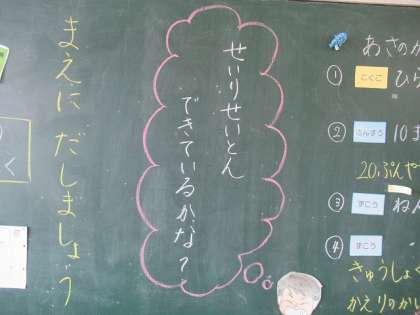 まえに だしましょう
せいりせいとん
できているかな？
あさの
① こくご ひ
② さんすう 10ま
20ぷんや
③ ずこう ねん
④ ずこう
きゅうしょく
かえりのか
く